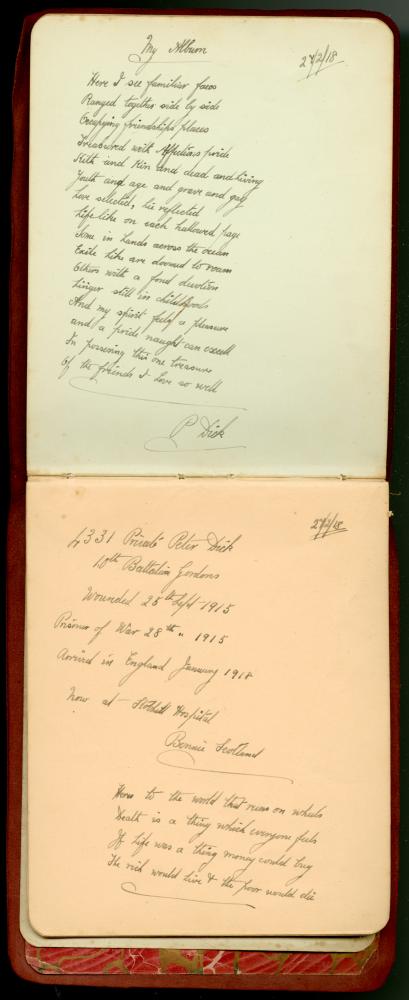 My Album
27/2/18
Here I see familiar faces
Ranged together side by side
Occupying friendships places
Treasured with Affections pride
Kith and Kin and dead and living
Youth and age and grave and gay
Love selected, lie reflected
Life like on each hallowed page
Some in Lands across the ocean
Exile like are doomed to roam
Others with a fond devotion
Linger still in
And my spirit feels a pleasure
and a pride naught can excell
In possessing this one treasure
Of the friends I love so well
P Dick
27/2/18
4331 Private Peter Dick
10th Battalion Gordons
Wounded 25th Sept 1915
Prisoner of War 28th " 1915
Arrived in England January 1918
Now at Hospital
Bonnie Scotland
Heres to the world that runs on wheels
Death is a thing which everyone feels
If life was a thing money could buy
The rich would live & the poor would die